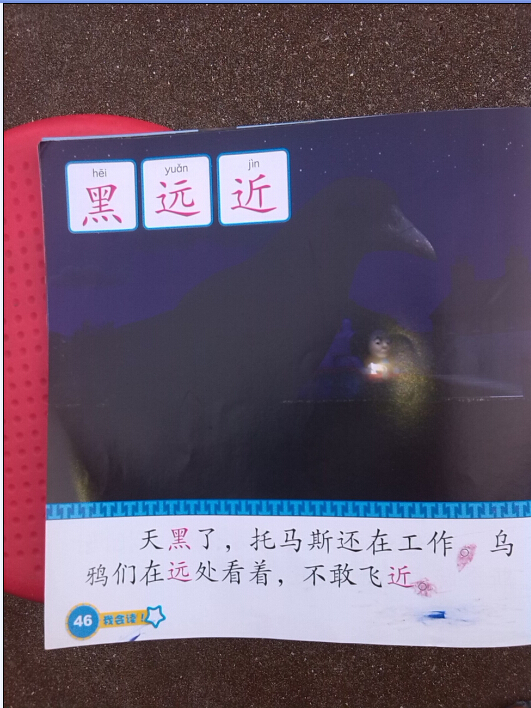 hēi yuǎn jìn
黑 远 近
天黑了，托马斯还在工作 乌
鸦们在远处看着，不敢飞近
46 我会读！